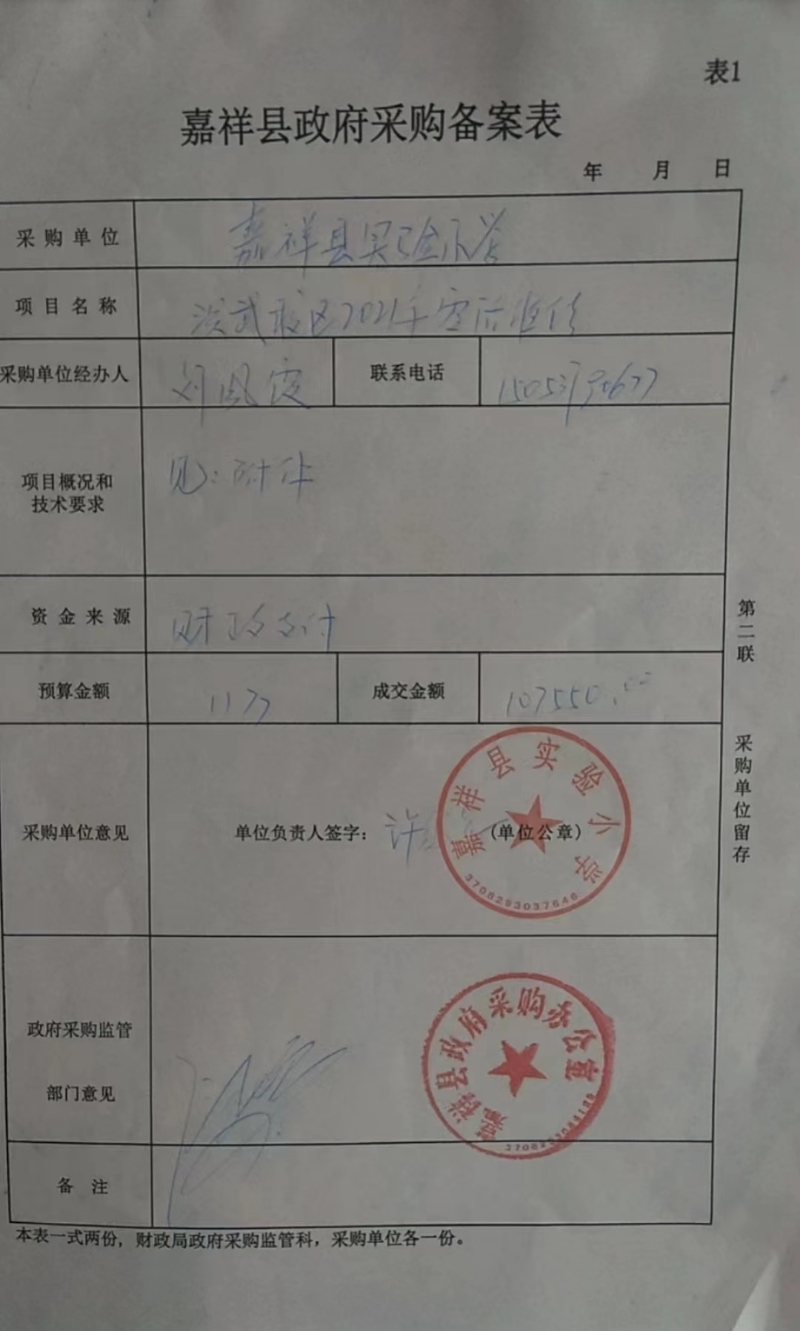 表1
嘉祥县政府采购备案表
年 月 日
采购单位 嘉祥县实验小学
项目名称 校区2021年空
采购单位经办人 刘凤霞 联系电话
项目概况和
技术要求
见:附件
资金来源 财政支付
预算金额 11万 成交金额 107550.00
采购单位意见 单位负责人签字: 许 (单位公章)
嘉祥县实验小学
3708293037646
政府采购监管
部门意见
嘉祥县政府采购办公室
备注
本表一式两份,财政局政府采购监管科,采购单位各一份。
第二联 采购单位留存